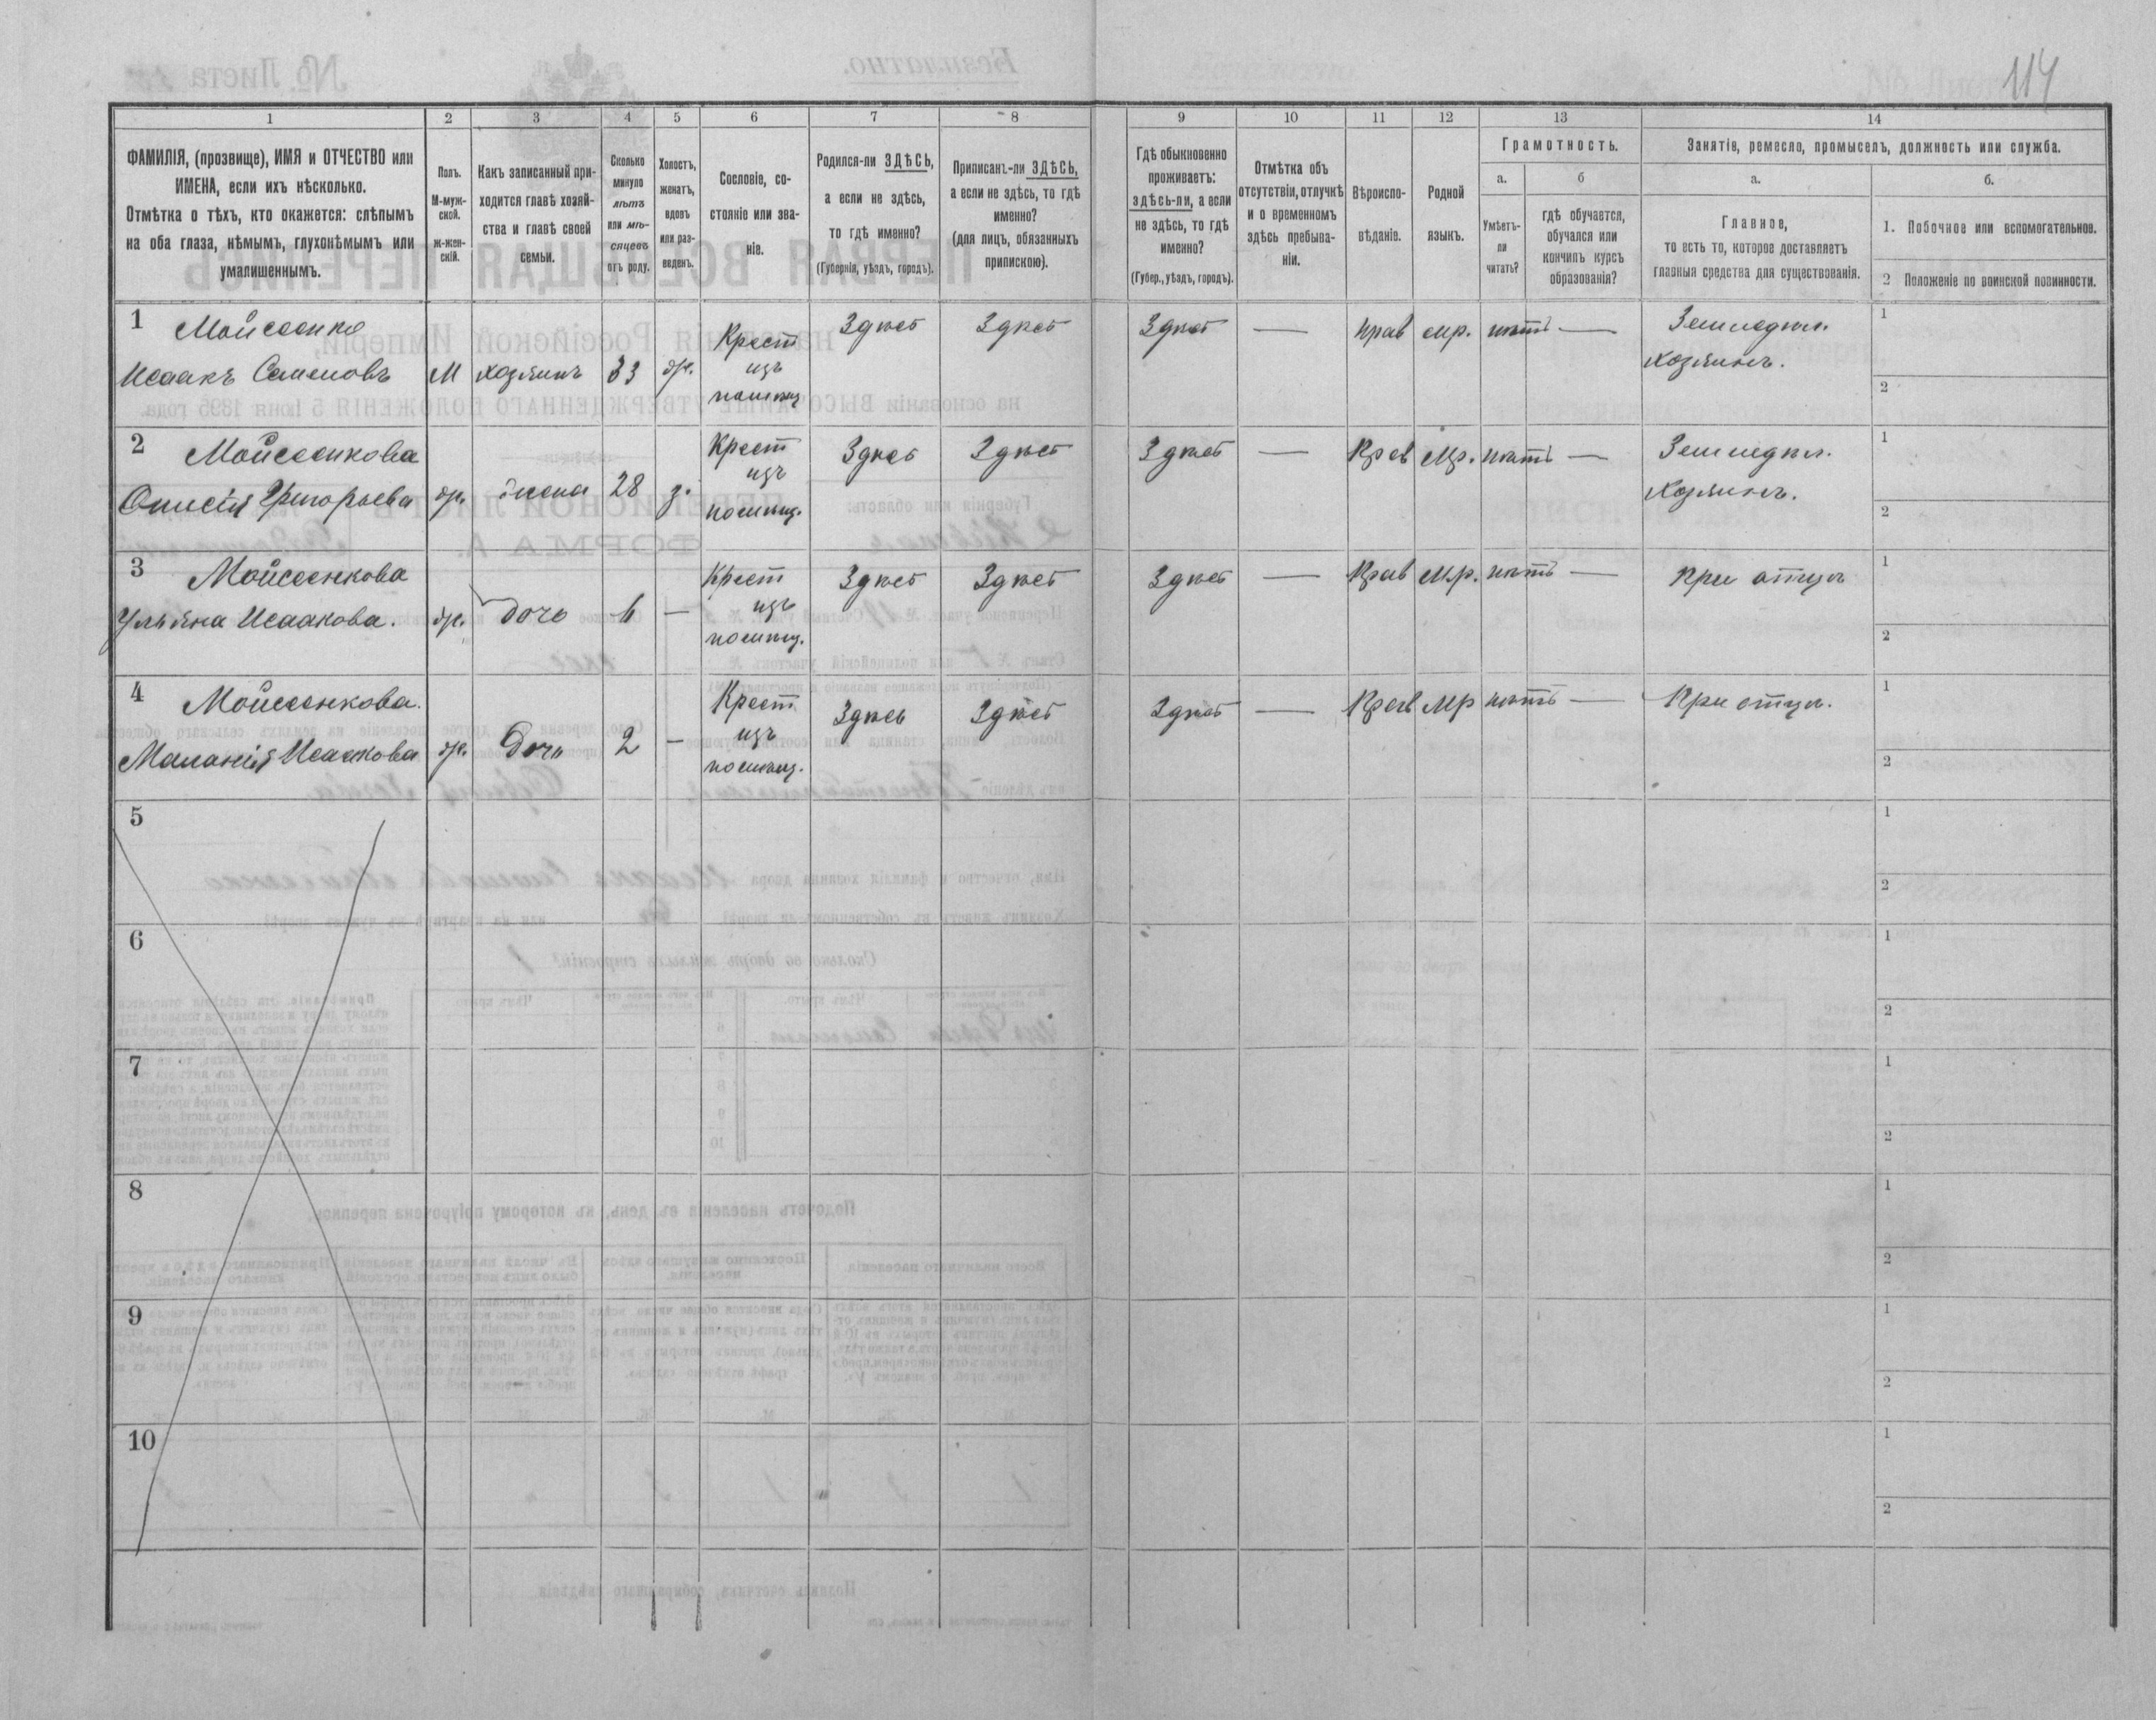 114
1
2
3
4
5
6
7
8
9
10
11
12
13
14
ФАМИЛІЯ, (прозвище), ИМЯ и ОТЧЕСТВО или
ИМЕНА, если ихъ нѣсколько.
Отмѣтка о тѣхъ, кто окажется: слѣпымъ
на оба глаза, нѣмымъ, глухонѣмымъ или
умалишеннымъ.
Полъ.
М-муж-
ской.
ж-жен-
скій.
Какъ записанный при-
ходится главѣ хозяй-
ства и главѣ своей
семьи.
Сколько
минуло
лѣтъ
или мѣ-
сяцевъ
отъ роду.
Холостъ,
женатъ,
вдовъ
или раз-
веденъ.
Сословіе, со-
стояніе или зва-
ніе.
Родился-ли ЗДѢСЬ,
а если не здѣсь,
то гдѣ именно?
(Губернія, уѣздъ, городъ).
Приписанъ-ли ЗДѢСЬ,
а если не здѣсь, то гдѣ
именно?
(для лицъ, обязанныхъ
припискою).
Гдѣ обыкновенно
проживаетъ:
здѣсь-ли, а если
не здѣсь, то гдѣ
именно?
(Губер., уѣздъ, городъ).
Отмѣтка объ
отсутствіи, отлучкѣ
и о временномъ
здѣсь пребыва-
ніи.
Вѣроиспо-
вѣданіе.
Родной
языкъ.
Грамотность.
а.
б
Умѣетъ-
ли
читать?
гдѣ обучается,
обучался или
кончилъ курсъ
образованія?
Занятіе, ремесло, промыселъ, должность или служба.
а.
б.
Главное,
то есть то, которое доставляетъ
главныя средства для существованія.
1. Побочное или вспомогательное.
2 Положеніе по воинской повинности.
1 Мойсеенко
Исаакъ Семеновъ М хозяинъ 33 ж. Крест изъ помѣщ Здѣсь Здѣсь Здѣсь — прав мр. нѣтъ — Земледѣл. хозяинъ. 1 2
2 Мойсеенкова
Онисія Григорьева ж. жена 28 з. Крест изъ помѣщ. Здѣсь Здѣсь Здѣсь — Прав Мр. нѣтъ — Земледѣл. Хозяинъ. 1 2
3 Мойсеенкова
Ульяна Исаакова. ж. дочь 6 — Крест изъ помѣщ. Здѣсь Здѣсь Здѣсь — Прав Мр. нѣтъ — При отцѣ 1 2
4 Мойсеенкова.
Маланія Исаакова ж. Дочь 2 — Крест изъ помѣщ. Здѣсь Здѣсь Здѣсь — Прав Мр нѣтъ — При отцѣ. 1 2
5 1 2
6 1 2
7 1 2
8 1 2
9 1 2
10 1 2